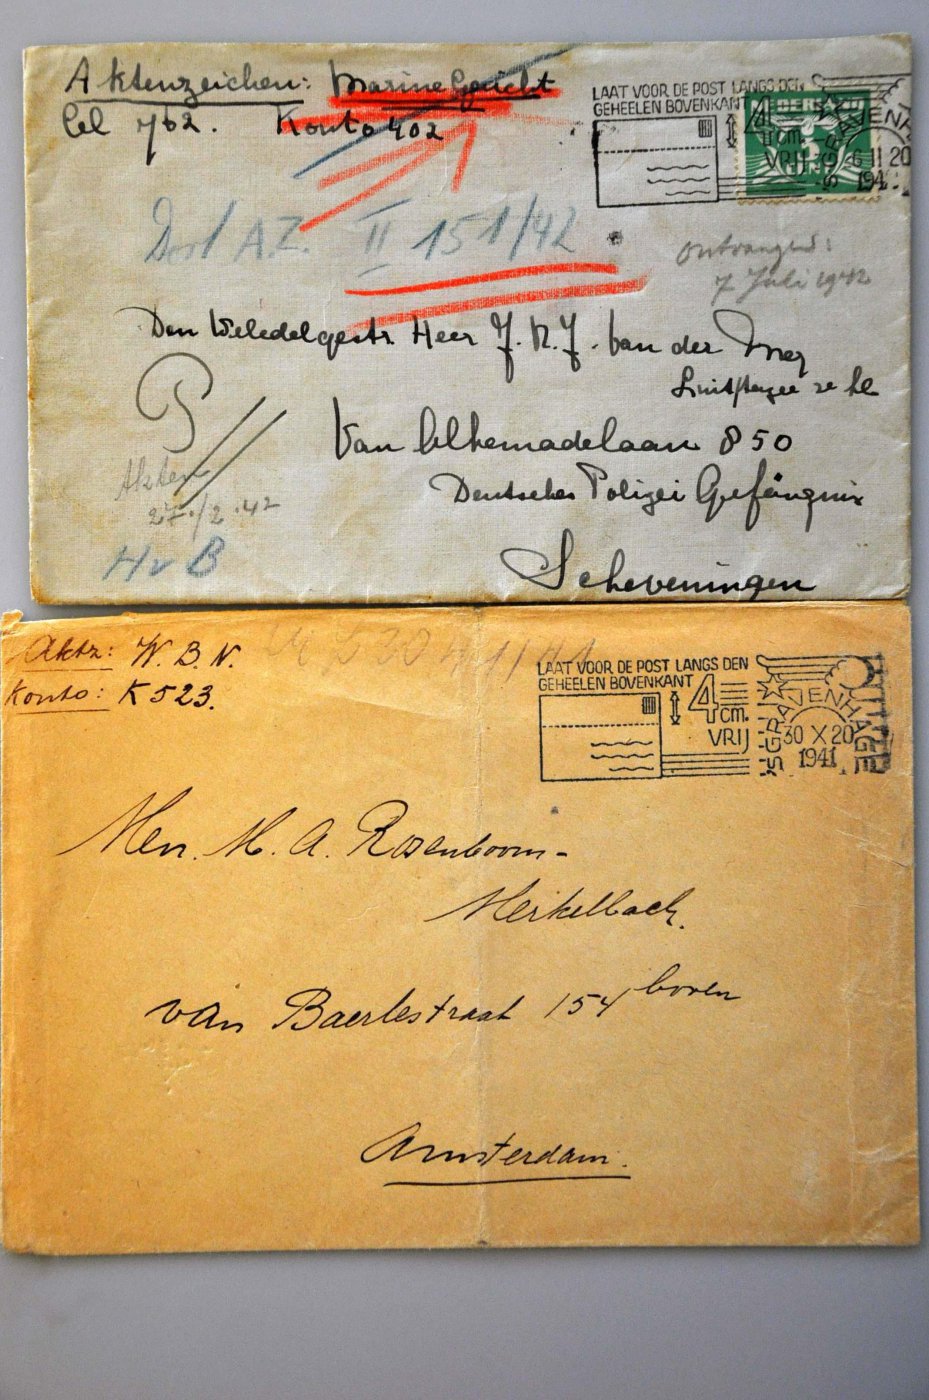 Aktenzeichen: Marine Gericht
Cel 762. Konto 402
LAAT VOOR DE POST LANGS DEN
GEHEELEN BOVENKANT
4 cm.
VRIJ
'S GRAVENHA
6 II 20
194
NEDERL
A.Z. II 151/42
ontvangen:
7 Juli 1942
Den Weledelgestr Heer J. K. J. van der
Van Alkemadelaan 850
Deutsches Polizei Gefängnis
Scheveningen
Akten
27./2.42
H v B
Aktz: W. B. N.
Konto: K 523.
LAAT VOOR DE POST LANGS DEN
GEHEELEN BOVENKANT
4 cm.
VRIJ
'S GRAVENHAGE
30 X 20
1941
Men. M. A. Rosenboom-
Merkelbach.
van Baerlestraat 154 boven
Amsterdam.